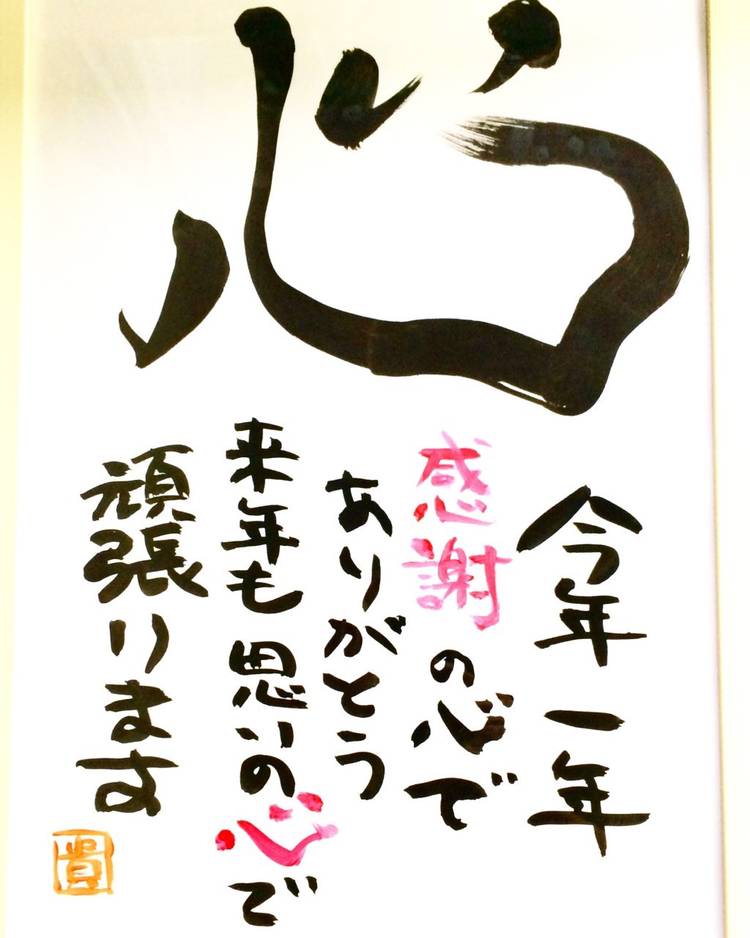 心
今年一年
感謝の心で
ありがとう
来年も思いの心で
頑張ります
貴